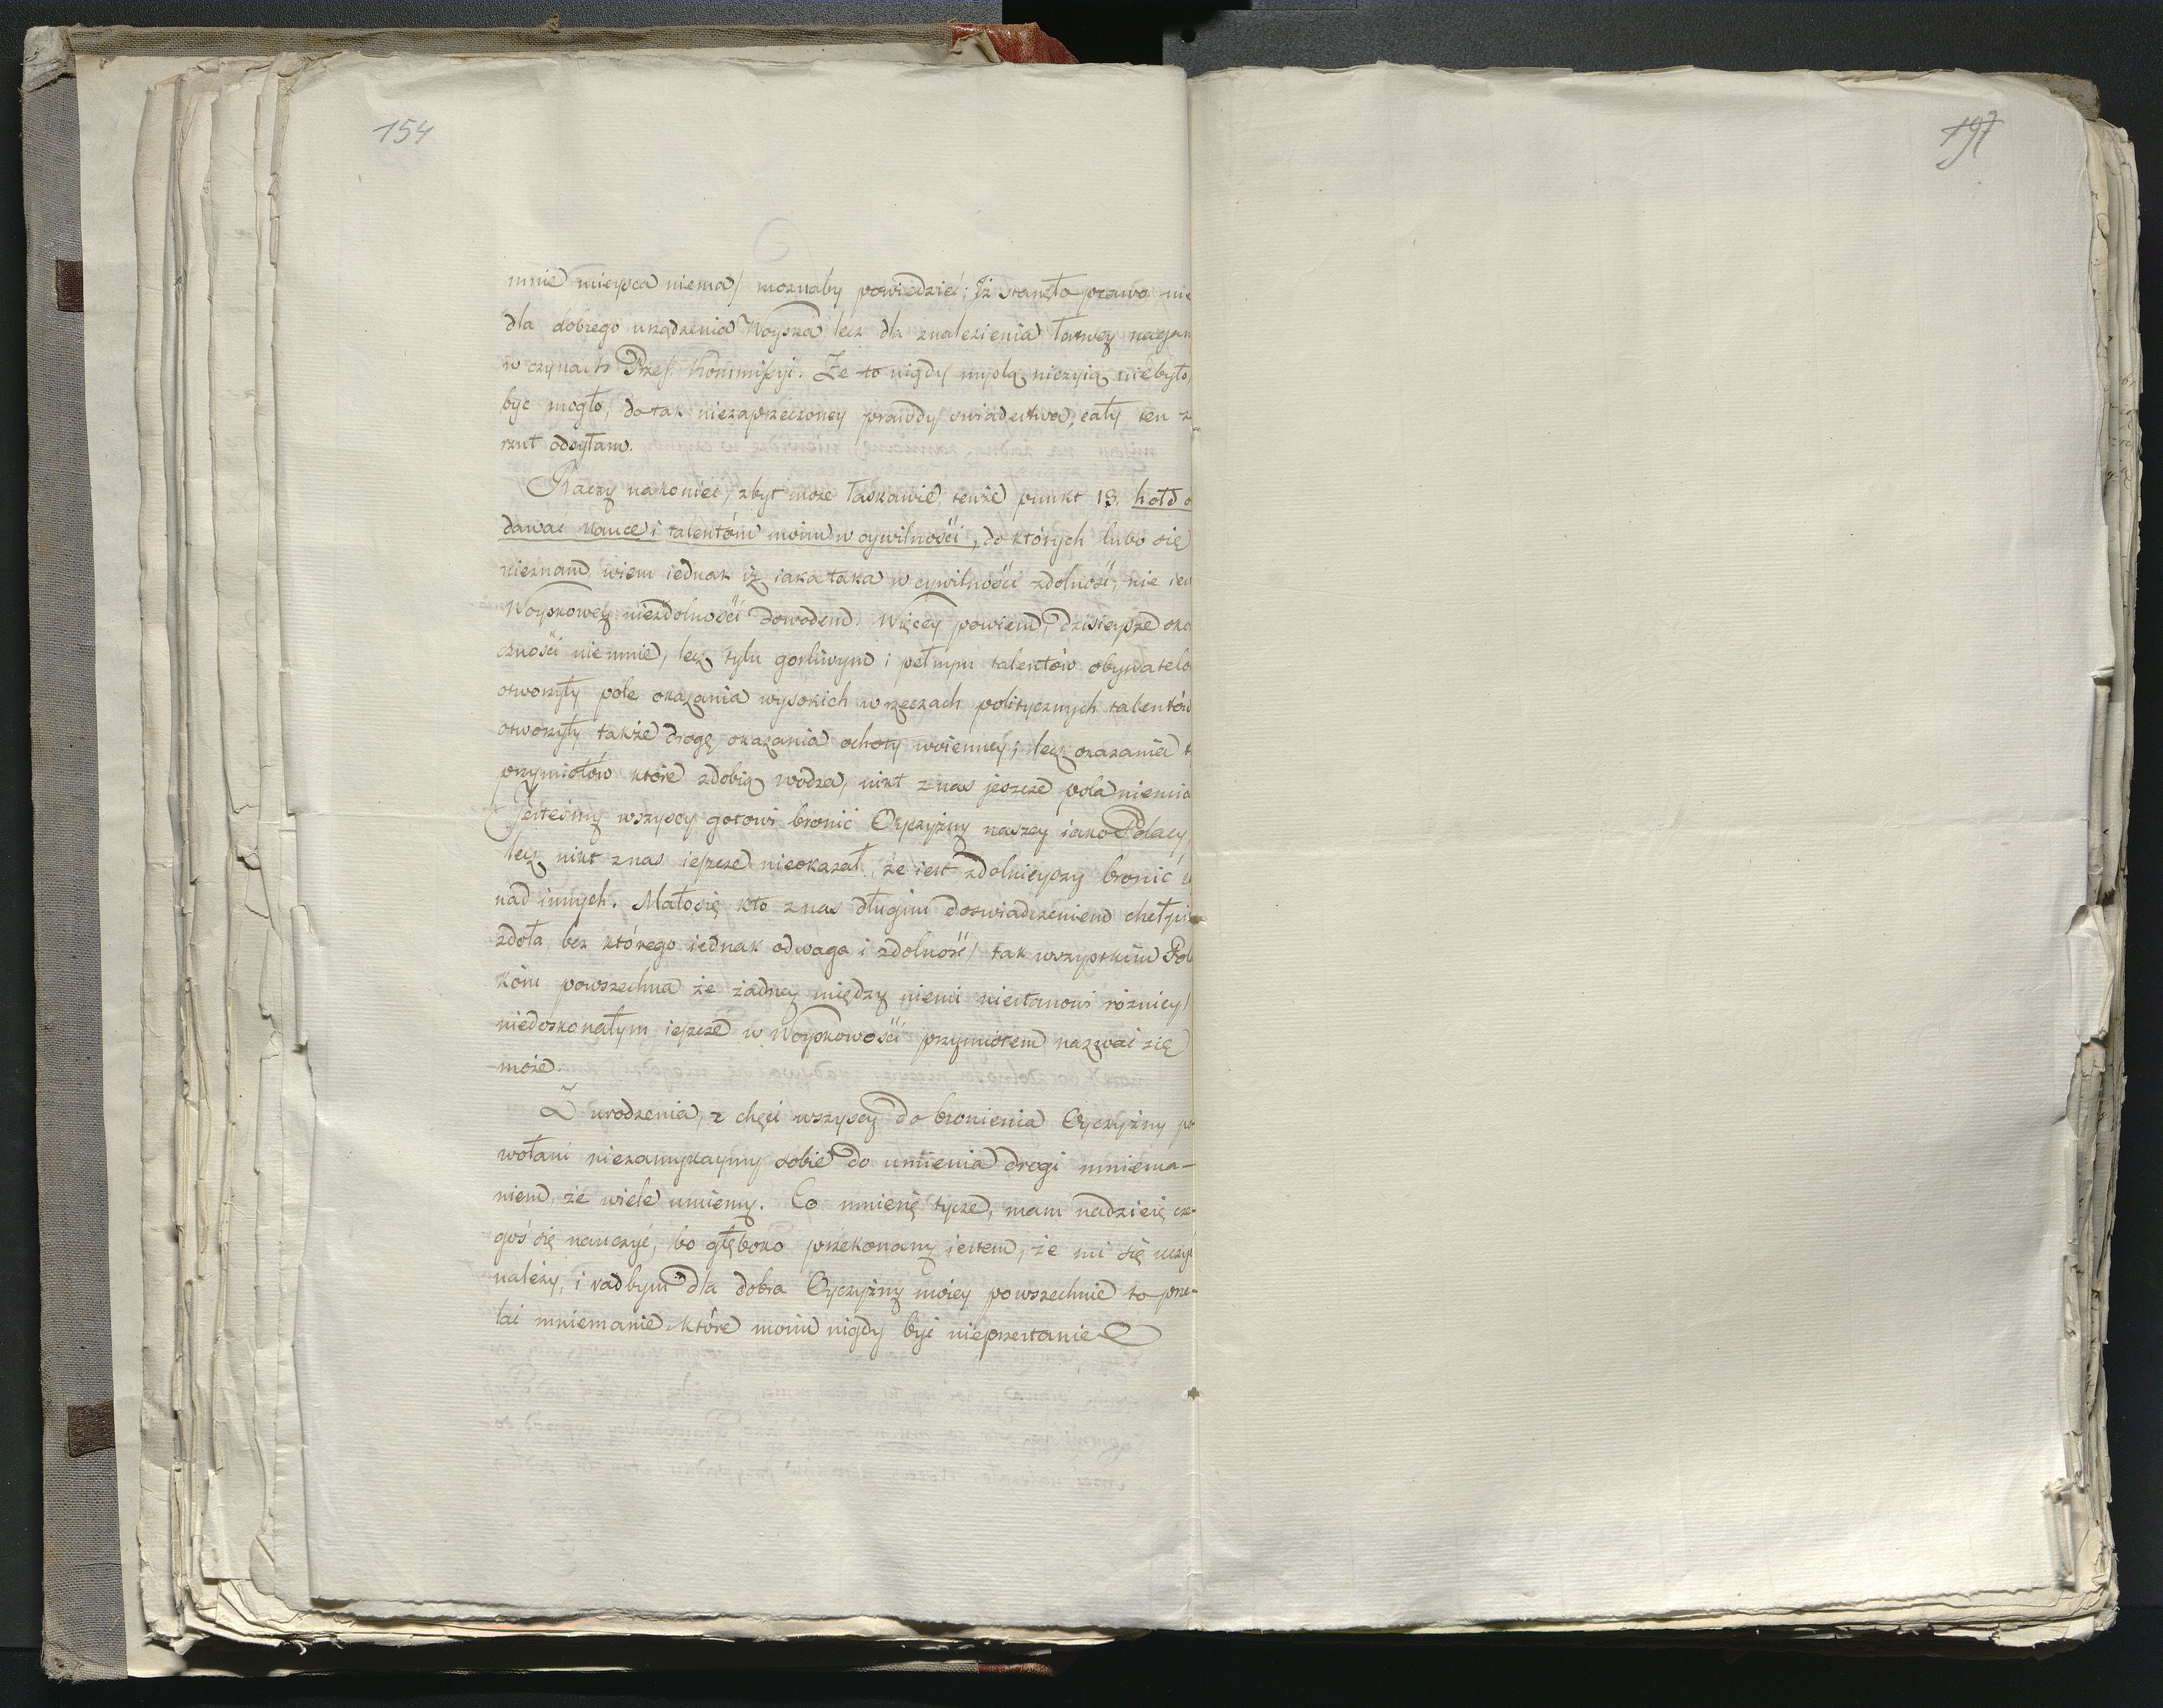 154
197
mnie mieysca niema/ moznaby powiedzieć; Iż stanęło prawo nie
dla dobrego urządzenia Woyska lecz dla znalezienia łatwey nagan
w czynach Prześ. Kommissyi. Że to nigdy myslą niczyią niebyło,
byc mogło, do tak niezaprzeczoney prawdy swiadectwa, cały ten z
rzut odsyłam.
Raczy nakoniec, zbyt może łaskawie, tenże punkt 13. hołd o
dawać nauce i talentóm moim w cywilności, do których lubo się
nieznam, wiem iednak iż iaka taka w cywilności zdolność, nie iest
Woyskowey niezdolności dowodem. Więcey powiem, dzisieysze oko
czności niemnie, lecz tylu gorliwym i pełnym talentów obywatelo
otworzyły pole okazania wysokich w rzeczach politycznych talentów
otworzyły także drogę okazania ochoty woienney; lecz okazania t
przymiotów które zdobią wodza, nikt z nas jeszcze pola niemia
Jesteśmy wszyscy gotowi bronić Oyczyzny naszey iako Polacy,
lecz nikt z nas ieszcze nieokazał, że iest zdolnieyszy bronić i
nad innych. Mało się kto z nas długim doswiadczeniem chełpi
zdoła, bez którego iednak odwaga i zdolność/ tak wszystkim Pol
kóm powszechna że żadney między niemi niestanowi róznicy/
niedoskonałym ieszcze w Woyskowości przymiotem nazwać się
może.
Z urodzenia, z chęci wszyscy do bronienia Oyczyzny po
wołani niezamykaymy sobie do umienia drogi mniema-
niem, że wiele umiemy. Co mnie się tycze, mam nadzieię cze-
goś się nauczyć, bo głęboko przekonany iestem, że mi się uczyć
należy, i radbym dla dobra Oyczyzny moiey powszechnie to prze-
lać mniemanie które moim nigdy być nieprzestanie